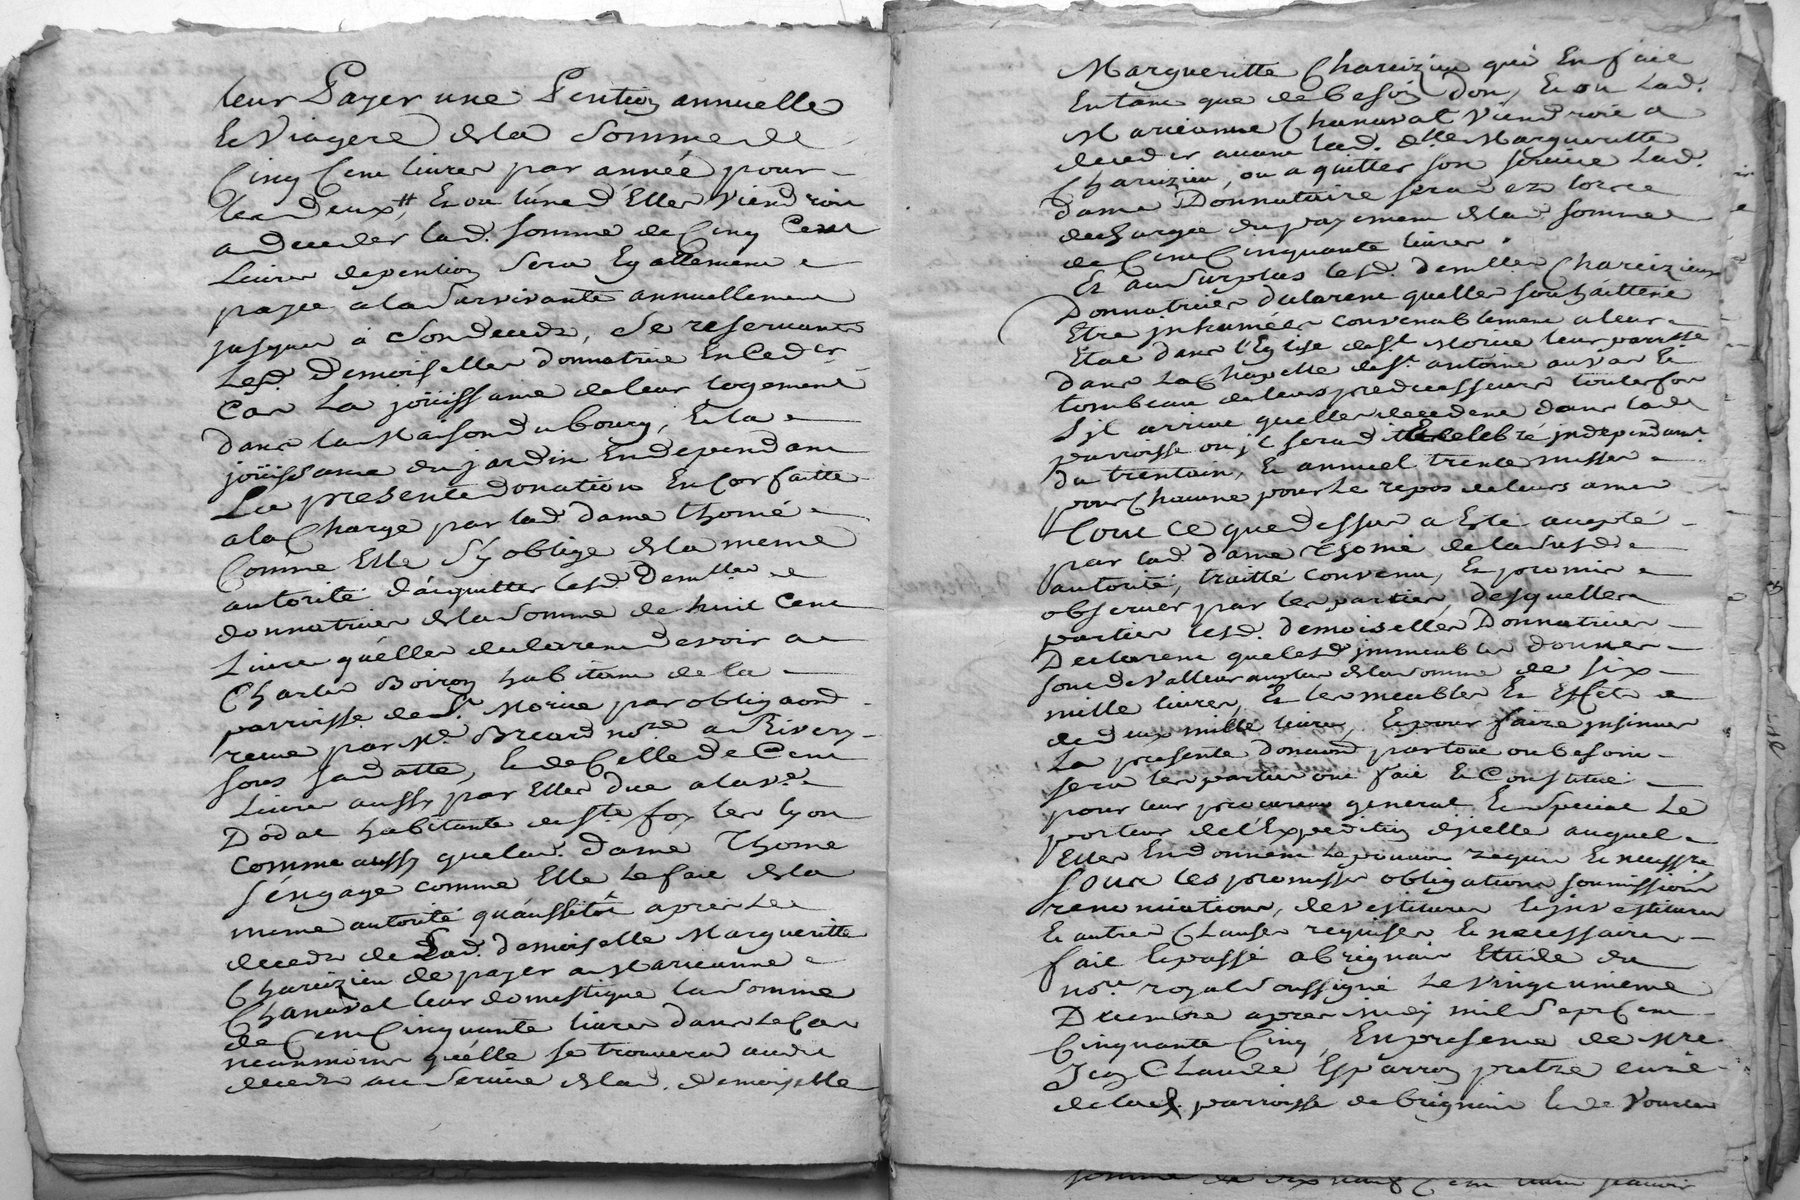 leur Payer une Pention annuelle
Et Viagere de la Somme de
Cinq Cent livres par année pour
les deux, Et ou l'une d'Elles Viendroit
a deceder lad. somme de Cinq Cent
Livres de pention sera Egallement
payée a la Survivante annuellement
jusques à Son deceds, Se reservants
Lesd. Demoiselles donnatrices En Ced.
Cas La joüissance de leur logement
dans la Maison du bourg, Et la
joüissance du jardin En dependant
La presente donation Encor faitte
a la Charge par lad. dame thomé
Comme Elle s'y oblige de la meme
autorité d'acquitter lesd. Demlles
donnatrices de la Somme de huit Cent
Livres qu'elles declarent devoir a
Charles Boiron habitant de la
parroisse de St. Morice par obligaon
receue par Me. Breard nore. a Rivery
sous sa datte, Et de Celle de Cent
Livres aussy par Elles due a la ve.
Dodat habitante de Ste foy les lyon
Comme aussy que lad. dame Thomé
s'engage comme Elle le fait de la
meme autorité qu'aussitôt apres Le
deceds de Lad. demoiselle Margueritte
Chareizieu de payer a Marieanne
Chanaval leur domestique la Somme
de Cent Cinquante livres dans Le Cas
neanmoins qu'elle se trouvera audit
deceds au Service de lad. demoiselle
Margueritte Chareizieu qui En fait
Entant que de besoin don, Et ou Lad.
Marieanne Chanaval Viendroit a
deceder avant lad. dlle Margueritte
Chareizieu, ou a quitter son service Lad.
dame Donnataire sera
dechargée du payement de lad. somme
de Cent Cinquante livres.
Et au Surplus lesd. demlles Chareizieux
Donnatrices declarent quelles souhaitterit
Etre jnhumées convenablement a leur
Etat dans l'Eglise de St Morice leur parrisse
dans La Chapelle de St. antoine
tombeau de leurs predecesseurs toutesfois
s'jl arrive quelles decedent dans lad.
parroisse ou jl sera dit Et Celebré jndependamt.
du trentain, Et annuel trente messes
pour Chacune pour Le repos de leurs ames
Tout Ce que dessus a Esté accepté
par lad. dame Thomé de la Susd.
autorité, traitté convenu, Et promis
observer par les parties, desquelles
parties lesd. demoiselles Donnatrices
Declarent que lesd. jmmeubles donnés
sont de Valleur de la somme de six
mille livres, Et les meubles Et Effets
de deux mille livres, Et pour faire jnsinuer
La presente donaon par tout ou besoin
sera les parties ont fait Et Constitué
pour leur procureur general Et Special Le
porteur de l'Expedition d'jcelle auquel
Elles En donnent le pouvoir requis Et necessre
sous les promesses obligations soumissions
renonciations, devestitures Et jnvestitures
Et autres Clauses requises Et necessaires
fait Et passé a Brignais Etude du
nore. royal soussigné Le Vingt unieme
Decembre apres midy mil Sept Cent
Cinquante Cinq, En presence de Mre.
Jean Claude Esparron pretre curé
de lad. parroisse de brignais Et de Vourles